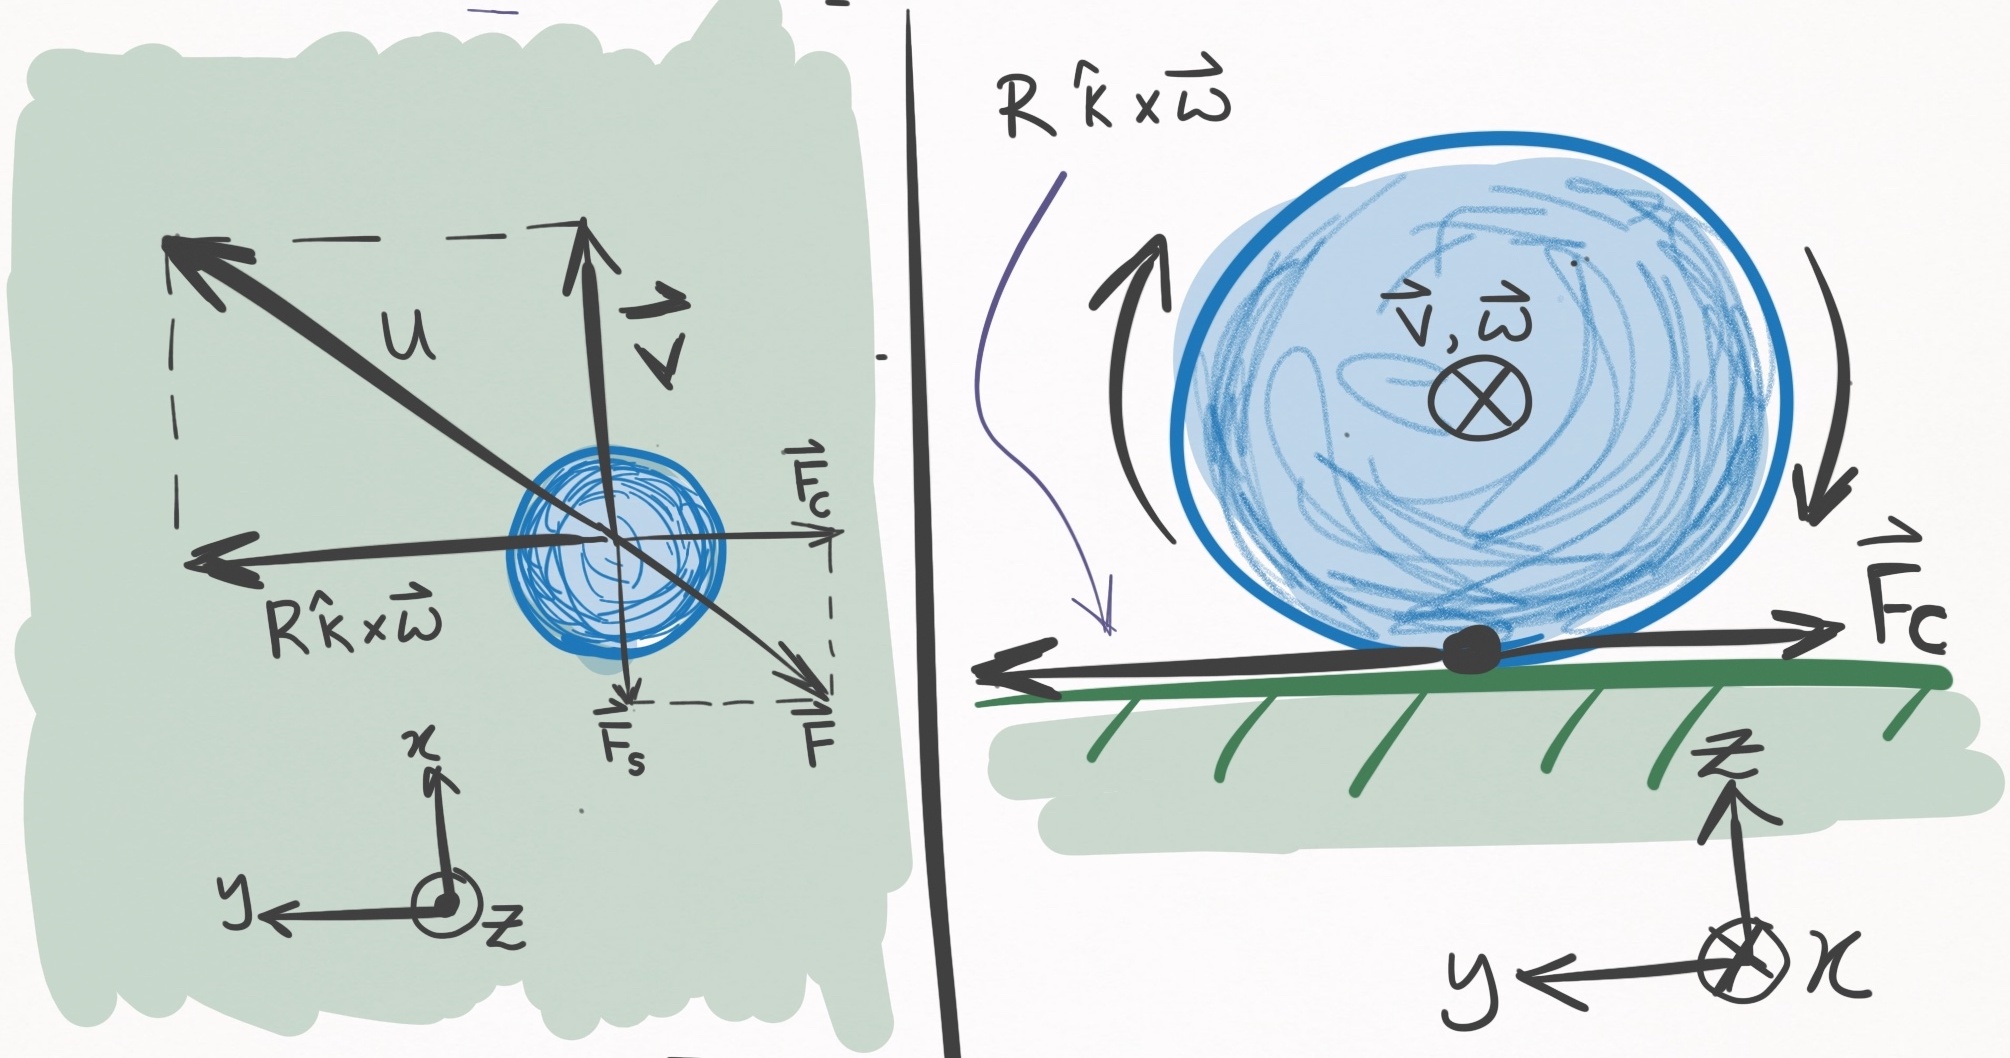 U
v⃗
F⃗c
Rk̂×ω⃗
F⃗s
F⃗
x
y
z
Rk̂×ω⃗
v⃗, ω⃗
F⃗c
z
y
x